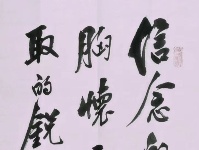 信念
胸懷
取的銳